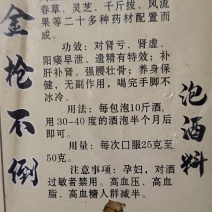 金枪不倒
春草、灵芝、千斤拔、风流
果等二十多种药材配置而
成。
功效：对肾亏、肾虚、
阳痿早泄、遗精有特效；补
肝补肾、强腰壮骨；养身保
健、无副作用，喝完手脚不
冰冷。
用法：每包泡10斤酒，
用30-40度的酒泡半个月后
即可。
用量：每次口服25克至
50克。
注意事项：孕妇，对酒
过敏者禁用。高血压、高血
脂、高血糖人群减半。
泡酒料